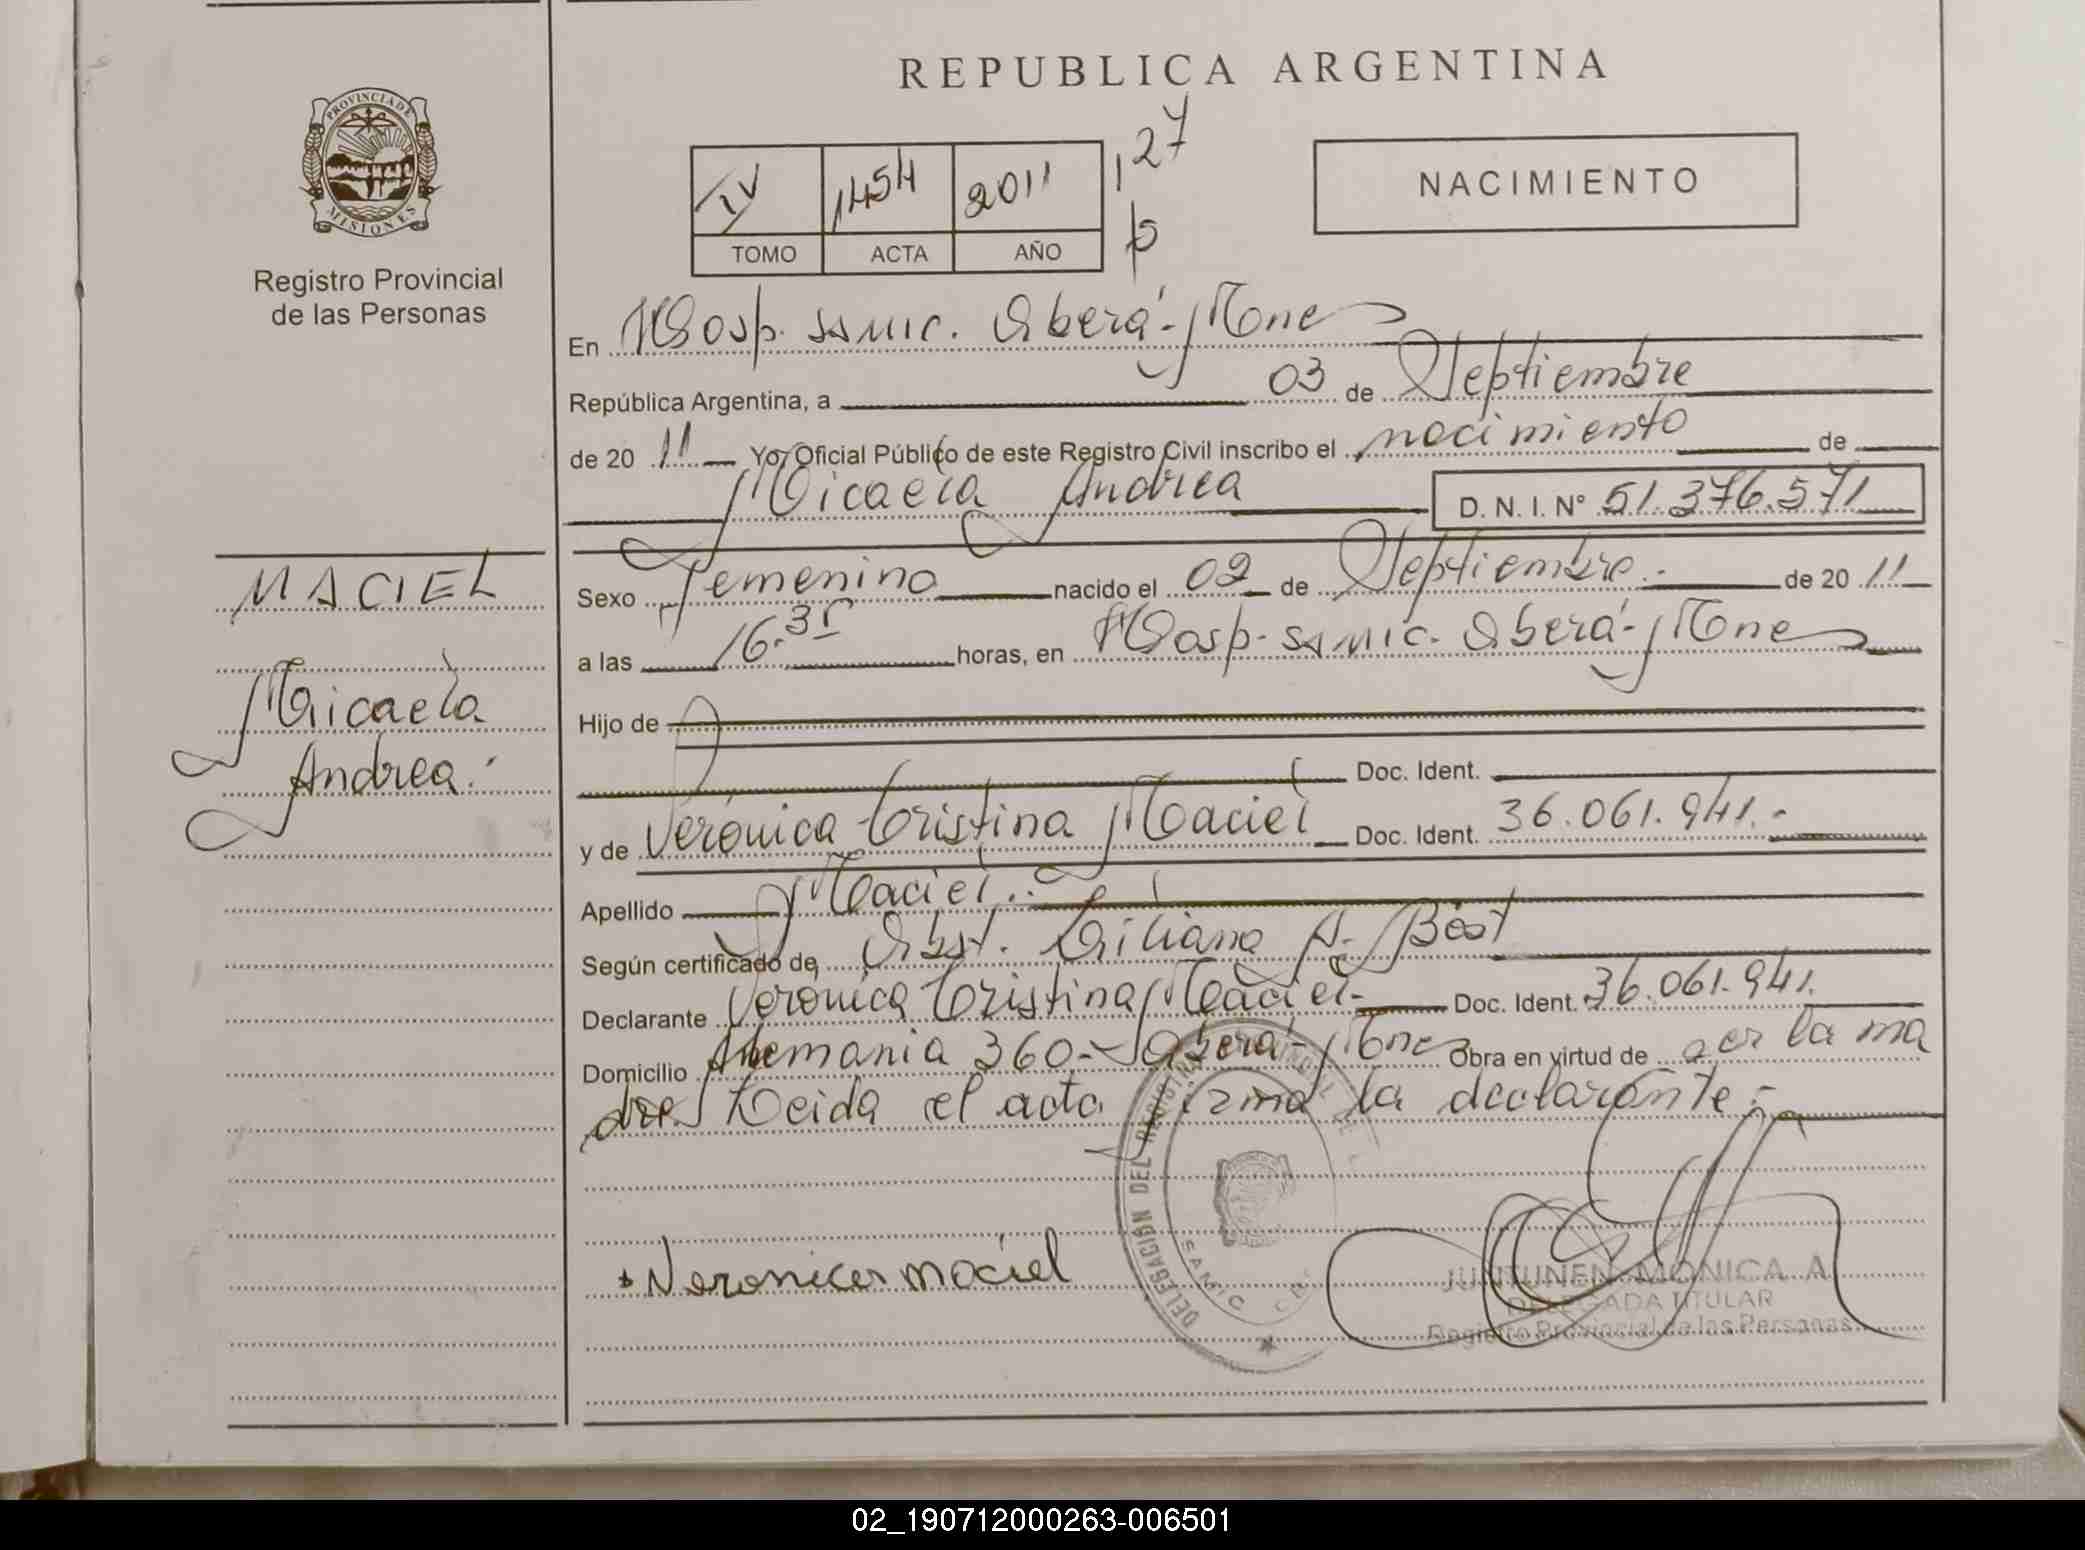 REPUBLICA ARGENTINA
PROVINCIA DE
MISIONES
Registro Provincial
de las Personas
IV 1454 2011
TOMO ACTA AÑO
127
NACIMIENTO
En Hosp. SAMIC. Oberá-Mnes
República Argentina, a 03 de Septiembre
de 20 11 Yo, Oficial Público de este Registro Civil inscribo el nacimiento de
Micaela Andrea D. N. I. Nº 51.376.571
MACIEL
Micaela
Andrea.
Sexo femenino nacido el 02 de Septiembre. de 20 11
a las 16.35 horas, en Hosp. SAMIC. Oberá-Mnes
Hijo de
Doc. Ident.
y de Verónica Cristina Maciel Doc. Ident. 36.061.941.-
Apellido Maciel.
Según certificado de, Obst. Liliana A. Bost
Declarante Verónica Cristina Maciel- Doc. Ident. 36.061.941.
Domicilio Alemania 360- Oberá-Mnes Obra en virtud de ser la ma
dre. Leida el acta firma la declarante.-
Veronica maciel
DELEGACIÓN DEL REGISTRO PROVINCIAL DE
SAMIC
JUNTUNEN MONICA A.
DELEGADA TITULAR
Registro Provincial de las Personas
02_190712000263-006501